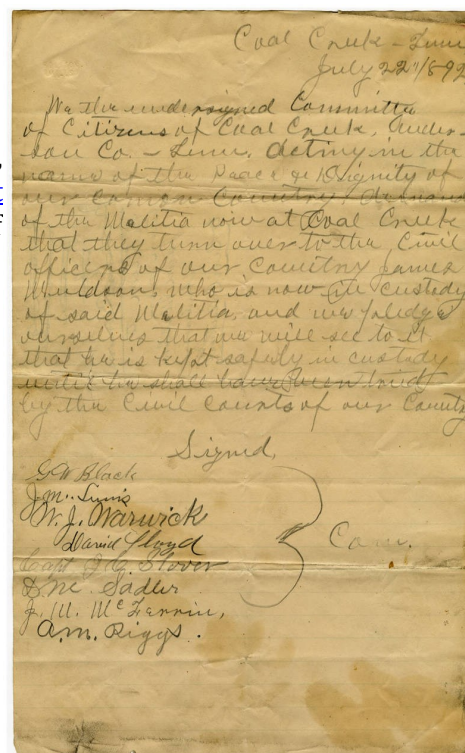 Coal Creek - Tenn
July 22"/892
We the undersigned Committee
of Citizens of Coal Creek, Ander-
son Co. - Tenn. acting in the
name of the Peace & Dignity of
our common Country demand
of the Melitia now at Coal Creek
that they turn over to the Civil
officers of our Country James
who is now in custody
of said Melitia, and we pledge
ourselves that we will see to it
that he is kept safely in custody
until he shall have been tried
by the Civil Courts of our County
Signed,
G W Black
J. M.
W. J. Warwick
David Lloyd
Com.
Capt J. C. Glover
Sadler
J. M. McFerrin,
A. M. Riggs.